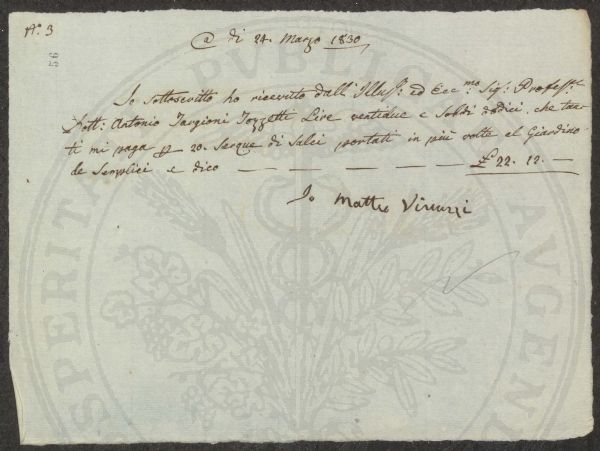 N.° 3
56
@ di 24. Marzo 1830
Io sottoscritto ho ricevuto dall' Illus.^e ed Ecc.^mo Sig.^r Profess.^re
Dott.^e Antonio Targioni Tozzetti Lire ventidue e Soldi dodici, che tan-
ti mi paga p 20. Serque di Salci portati in più volte al Giardino
de Semplici e dico — — — — — — £ 22. 12. —
Io Matteo
PUBLICAE
AVGENDAE